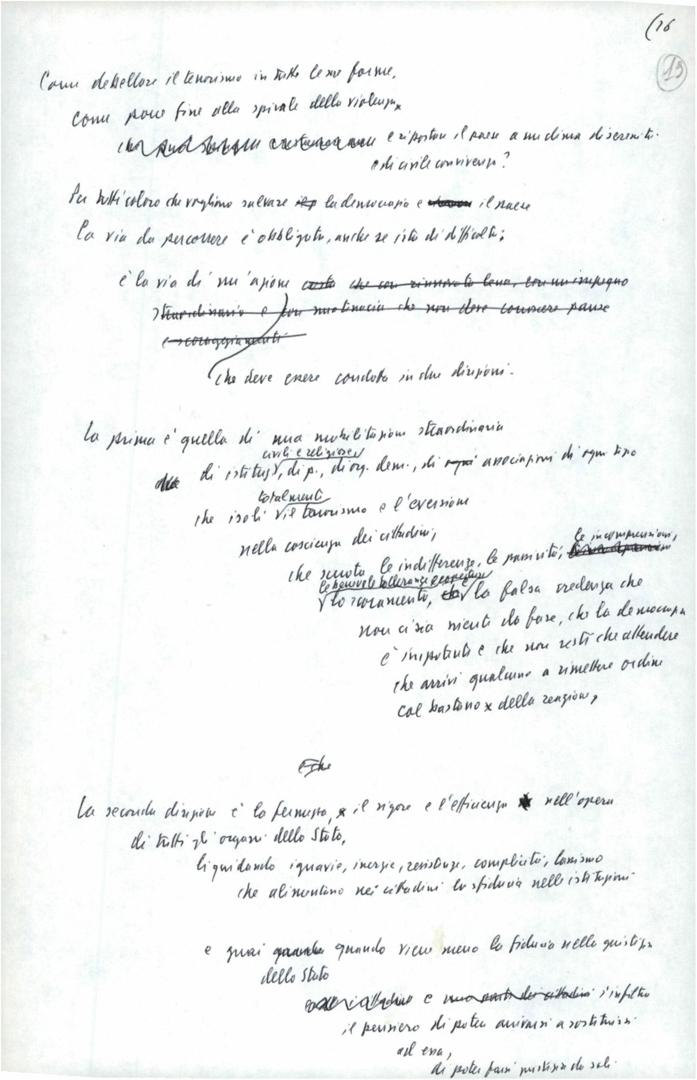 (16
15
Come debellare il terrorismo in tutte le sue forme,
come porre fine alla spirale della violenza
che può e riportare il paese a un clima di serenità
e di civile convivenza?
Per tutti coloro che vogliono salvare la democrazia e il paese
la via da percorrere è obbligata, anche se irta di difficoltà;
è la via di un'azione certo che con rinnovata lena, con un impegno
straordinario e con una tenacia che non deve conoscere pause
e scoraggiamenti
che deve essere condotta in due direzioni.
La prima è quella di una mobilitazione straordinaria
civili e religiose
di istituz, di p., di org. dem., di ogni associazioni di ogni tipo
totalmente
che isoli il terrorismo e l'eversione
nella coscienza dei cittadini;
le incomprensioni,
che scuota le indifferenze, le passività,
le benevole tolleranze e
lo scoramento, la falsa credenza che
non ci sia niente da fare, che la democrazia
è impotente e che non resti che attendere
che arrivi qualcuno a rimettere ordine
col bastone della reazione,
e che
La seconda direzione è la fermezza, il rigore e l'efficienza nell'opera
di tutti gli organi dello Stato,
liquidando ignavie, inerzie, resistenze, complicità, lassismo
che alimentano nei cittadini la sfiducia nelle istituzioni
e guai quando quando viene meno la fiducia nella giustizia
dello Stato
e una parte dei cittadini s'infiltra
il pensiero di poter arrivare a sostituirsi
ad essa,
di poter farsi giustizia da soli.